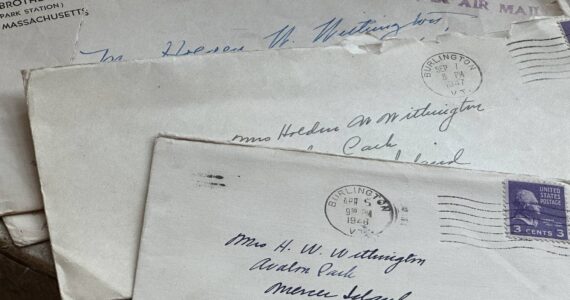 BROTHE
PARK STATION)
MASSACHUSETTS
AIR MAIL
M Holden W. Withington,
BURLINGTON
SEP 1
8 PM
1947
VT.
Mrs Holden W Withington
Park
Island
BURLINGTON
APR 5
9 30 PM
1948
VT.
UNITED STATES
POSTAGE
3 CENTS 3
Mrs H. W. Withington
Avalon Park
Mercer Island